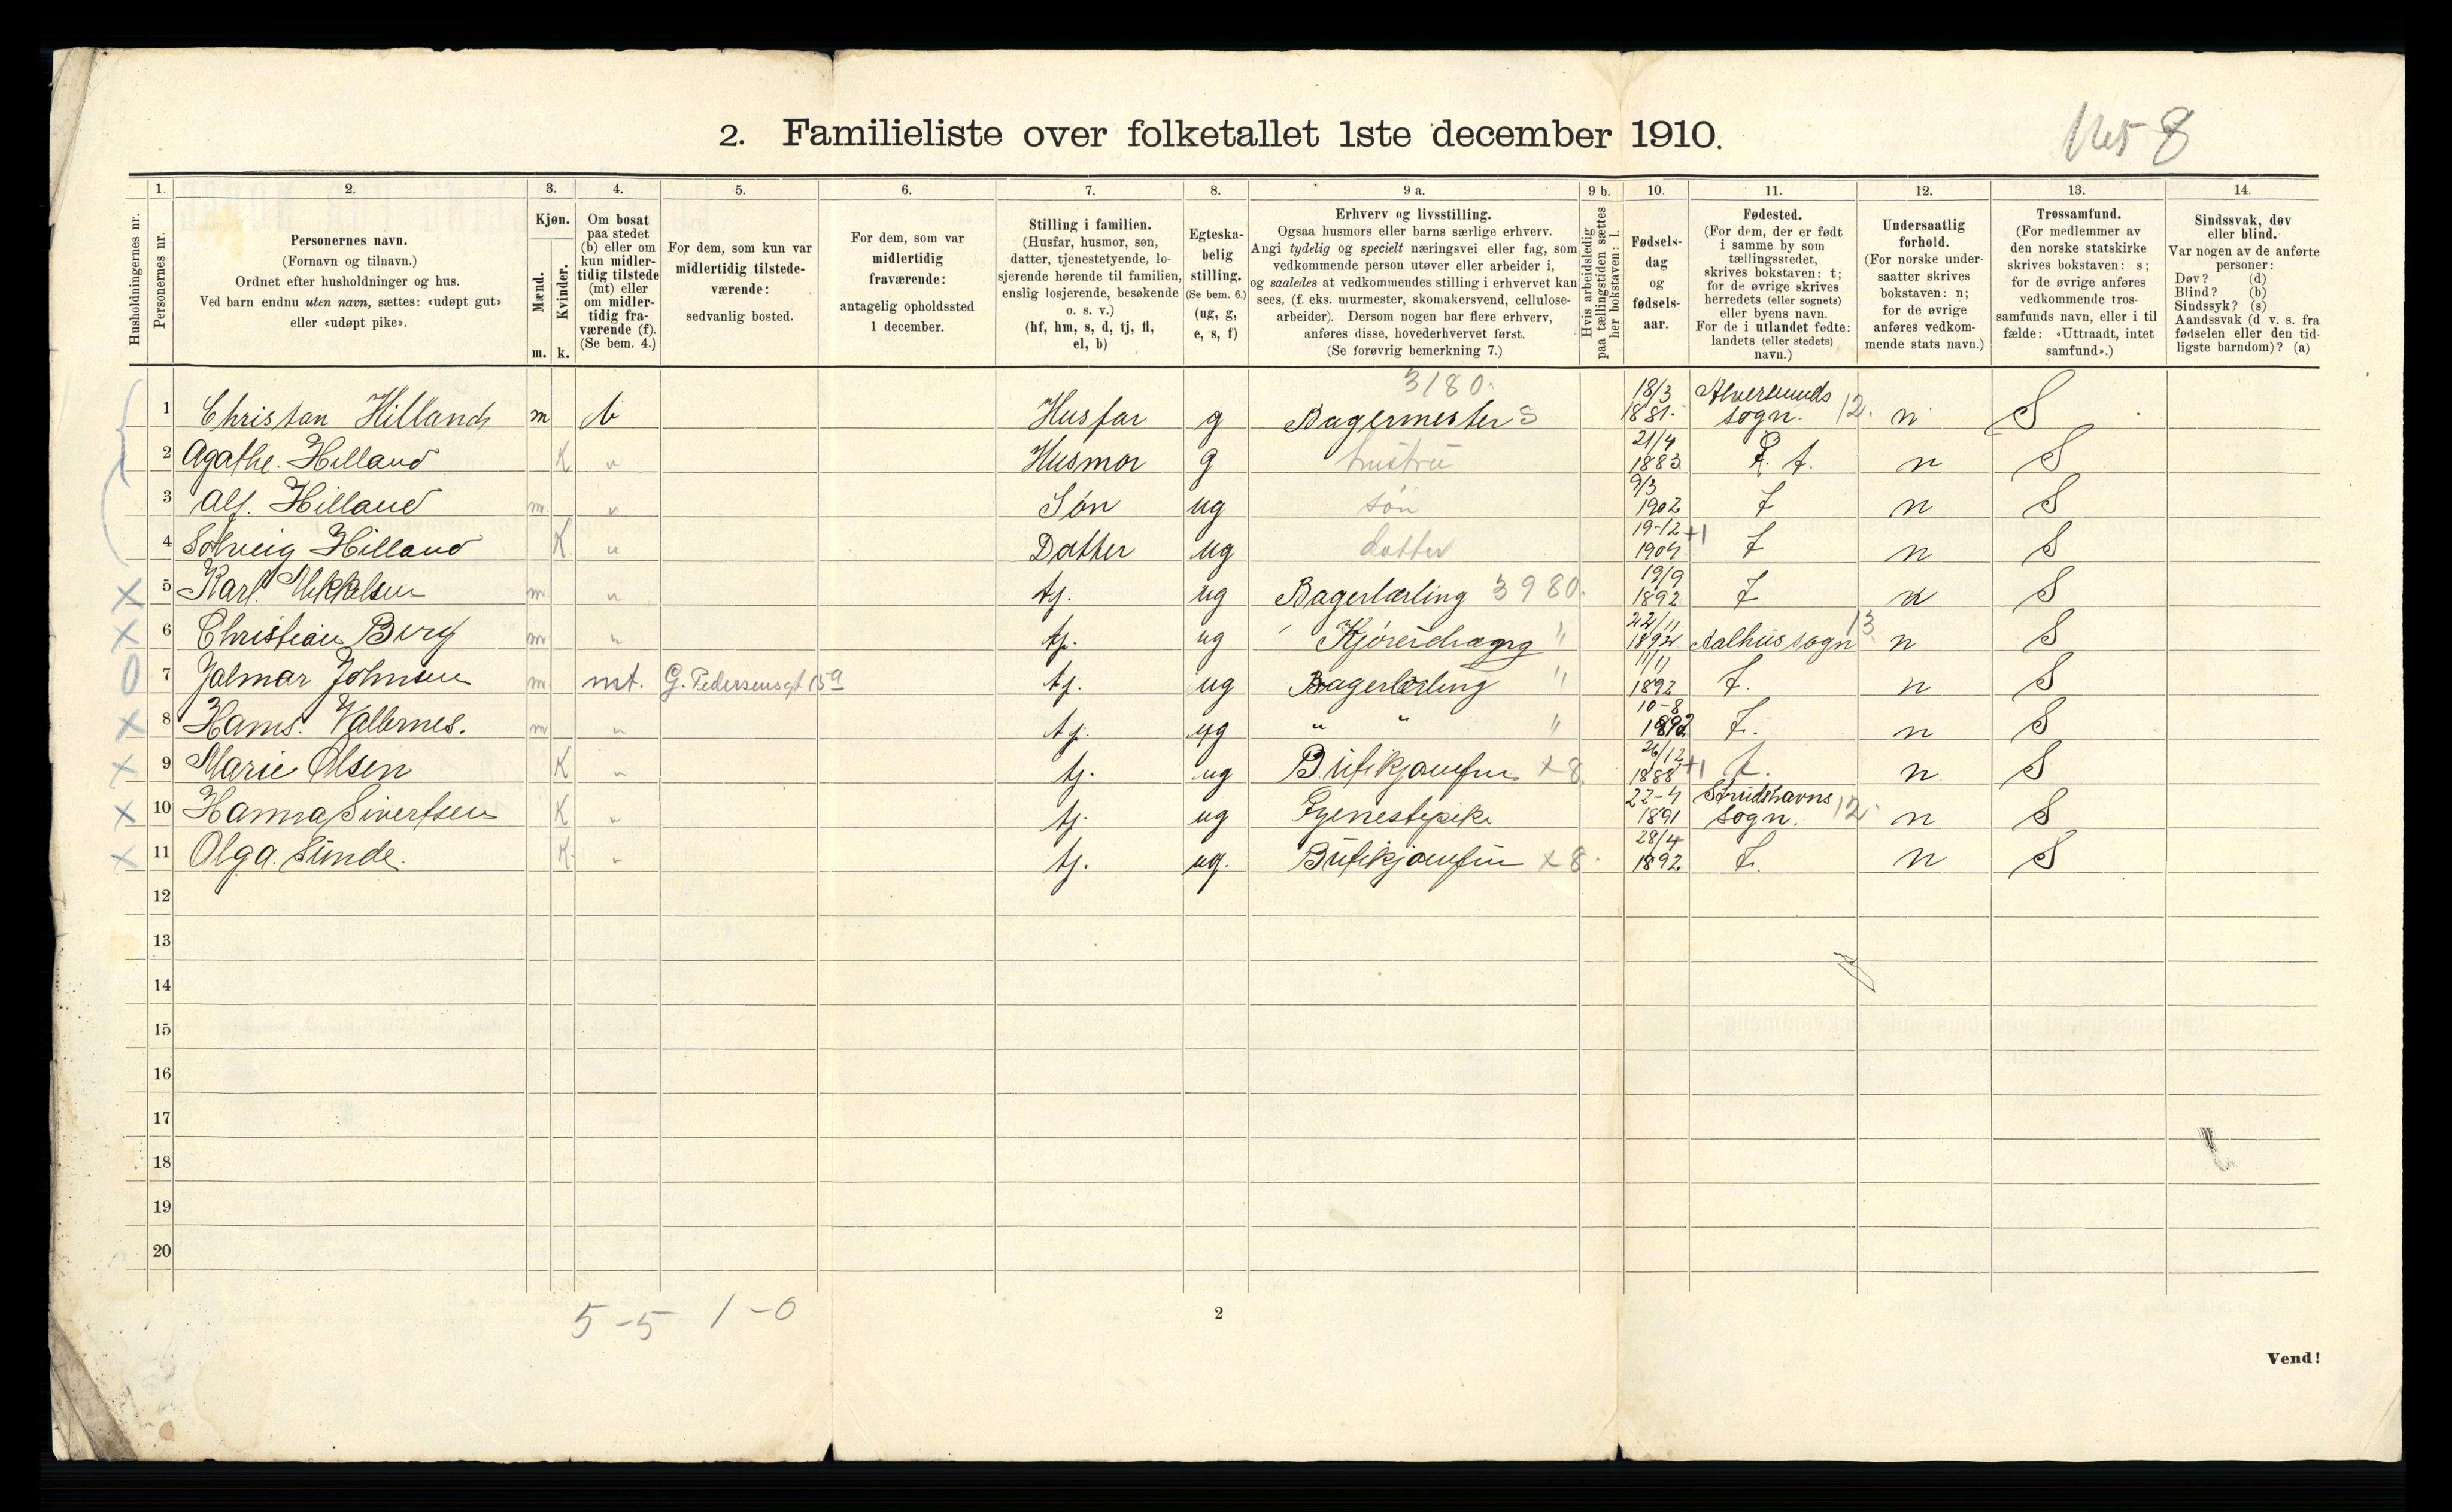 2. Familieliste over folketallet 1ste december 1910.
8
Husholdningernes nr.
1.
Personernes nr.
2.
Personernes navn.
(Fornavn og tilnavn.)
Ordnet efter husholdninger og hus.
Ved barn endnu uten navn, sættes: «udøpt gut»
eller «udøpt pike».
3.
Kjøn.
Mænd.
Kvinder.
m. k.
4.
Om bosat
paa stedet
(b) eller om
kun midler-
tidig tilstede
(mt) eller
om midler-
tidig fra-
værende (f).
(Se bem. 4.)
5.
For dem, som kun var
midlertidig tilstede-
værende:
sedvanlig bosted.
6.
For dem, som var
midlertidig
fraværende:
antagelig opholdssted
1 december.
7.
Stilling i familien.
(Husfar, husmor, søn,
datter, tjenestetyende, lo-
sjerende hørende til familien,
enslig losjerende, besøkende
o. s. v.)
(hf, hm, s, d, tj, fl,
el, b)
8.
Egteska-
belig
stilling.
(Se bem. 6.)
(ug, g,
e, s, f)
9 a.
Erhverv og livsstilling.
Ogsaa husmors eller barns særlige erhverv.
Angi tydelig og specielt næringsvei eller fag, som
vedkommende person utøver eller arbeider i,
og saaledes at vedkommendes stilling i erhvervet kan
sees, (f. eks. murmester, skomakersvend, cellulose-
arbeider). Dersom nogen har flere erhverv,
anføres disse, hovederhvervet først.
(Se forøvrig bemerkning 7.)
9 b.
Hvis arbeidsledig
paa tællingstiden sættes
her bokstaven: l.
10.
Fødsels-
dag
og
fødsels-
aar.
11.
Fødested.
(For dem, der er født
i samme by som
tællingsstedet,
skrives bokstaven: t;
for de øvrige skrives
herredets (eller sognets)
eller byens navn.
For de i utlandet fødte:
landets (eller stedets)
navn.)
12.
Undersaatlig
forhold.
(For norske under-
saatter skrives
bokstaven: n;
for de øvrige
anføres vedkom-
mende stats navn.)
13.
Trossamfund.
(For medlemmer av
den norske statskirke
skrives bokstaven: s;
for de øvrige anføres
vedkommende tros-
samfunds navn, eller i til
fælde: «Uttraadt, intet
samfund».)
14.
Sindssvak, døv
eller blind.
Var nogen av de anførte
personer:
Døv? (d)
Blind? (b)
Sindssyk? (s)
Aandssvak (d v. s. fra
fødselen eller den tid-
ligste barndom)? (a)
3180.
1 Christan Hilland m b Husfar g Bagermester S 18/3 1881. Alversunds sogn. 12. n S
2 Agathe. Hilland K " Husmor g hustru 21/4 1883 t. n S
3 Alf. Hilland m " Søn ug søn 9/3 1902 t n S
4 Solveig Hilland K " Datter ug datter 19-12 1904 +1 t n S
X 5 Karl Mikkelsen m " tj. ug Bagerlærling 3980. 19/9 1892 t n S
X 6 Christian Berg m " tj. ug Kjøredreng " 22/11 1892 Aalhus sogn 13 n S
O 7 Jalmar Johnsen m mt. G. Pedersensgt 15a tj. ug Bagerlærling " 11/11 1892 t. n S
X 8 Hans. Vallernes. m " tj. ug " " " 10-8 1892 t. n S
X 9 Marie Olsen K " tj. ug Butikjomfru x 8. 26/12 1888 +1 t. n S
X 10 Hanna Sivertsen K " tj. ug Tjenestepike 22-4 1891 Strudshavns sogn. 12 n S
X 11 Olga. Sunde. K " tj. ug. Butikjomfru x 8. 28/4 1892. t. n S
12
13
14
15
16
17
18
19
20
5-5 1-0
2
Vend!